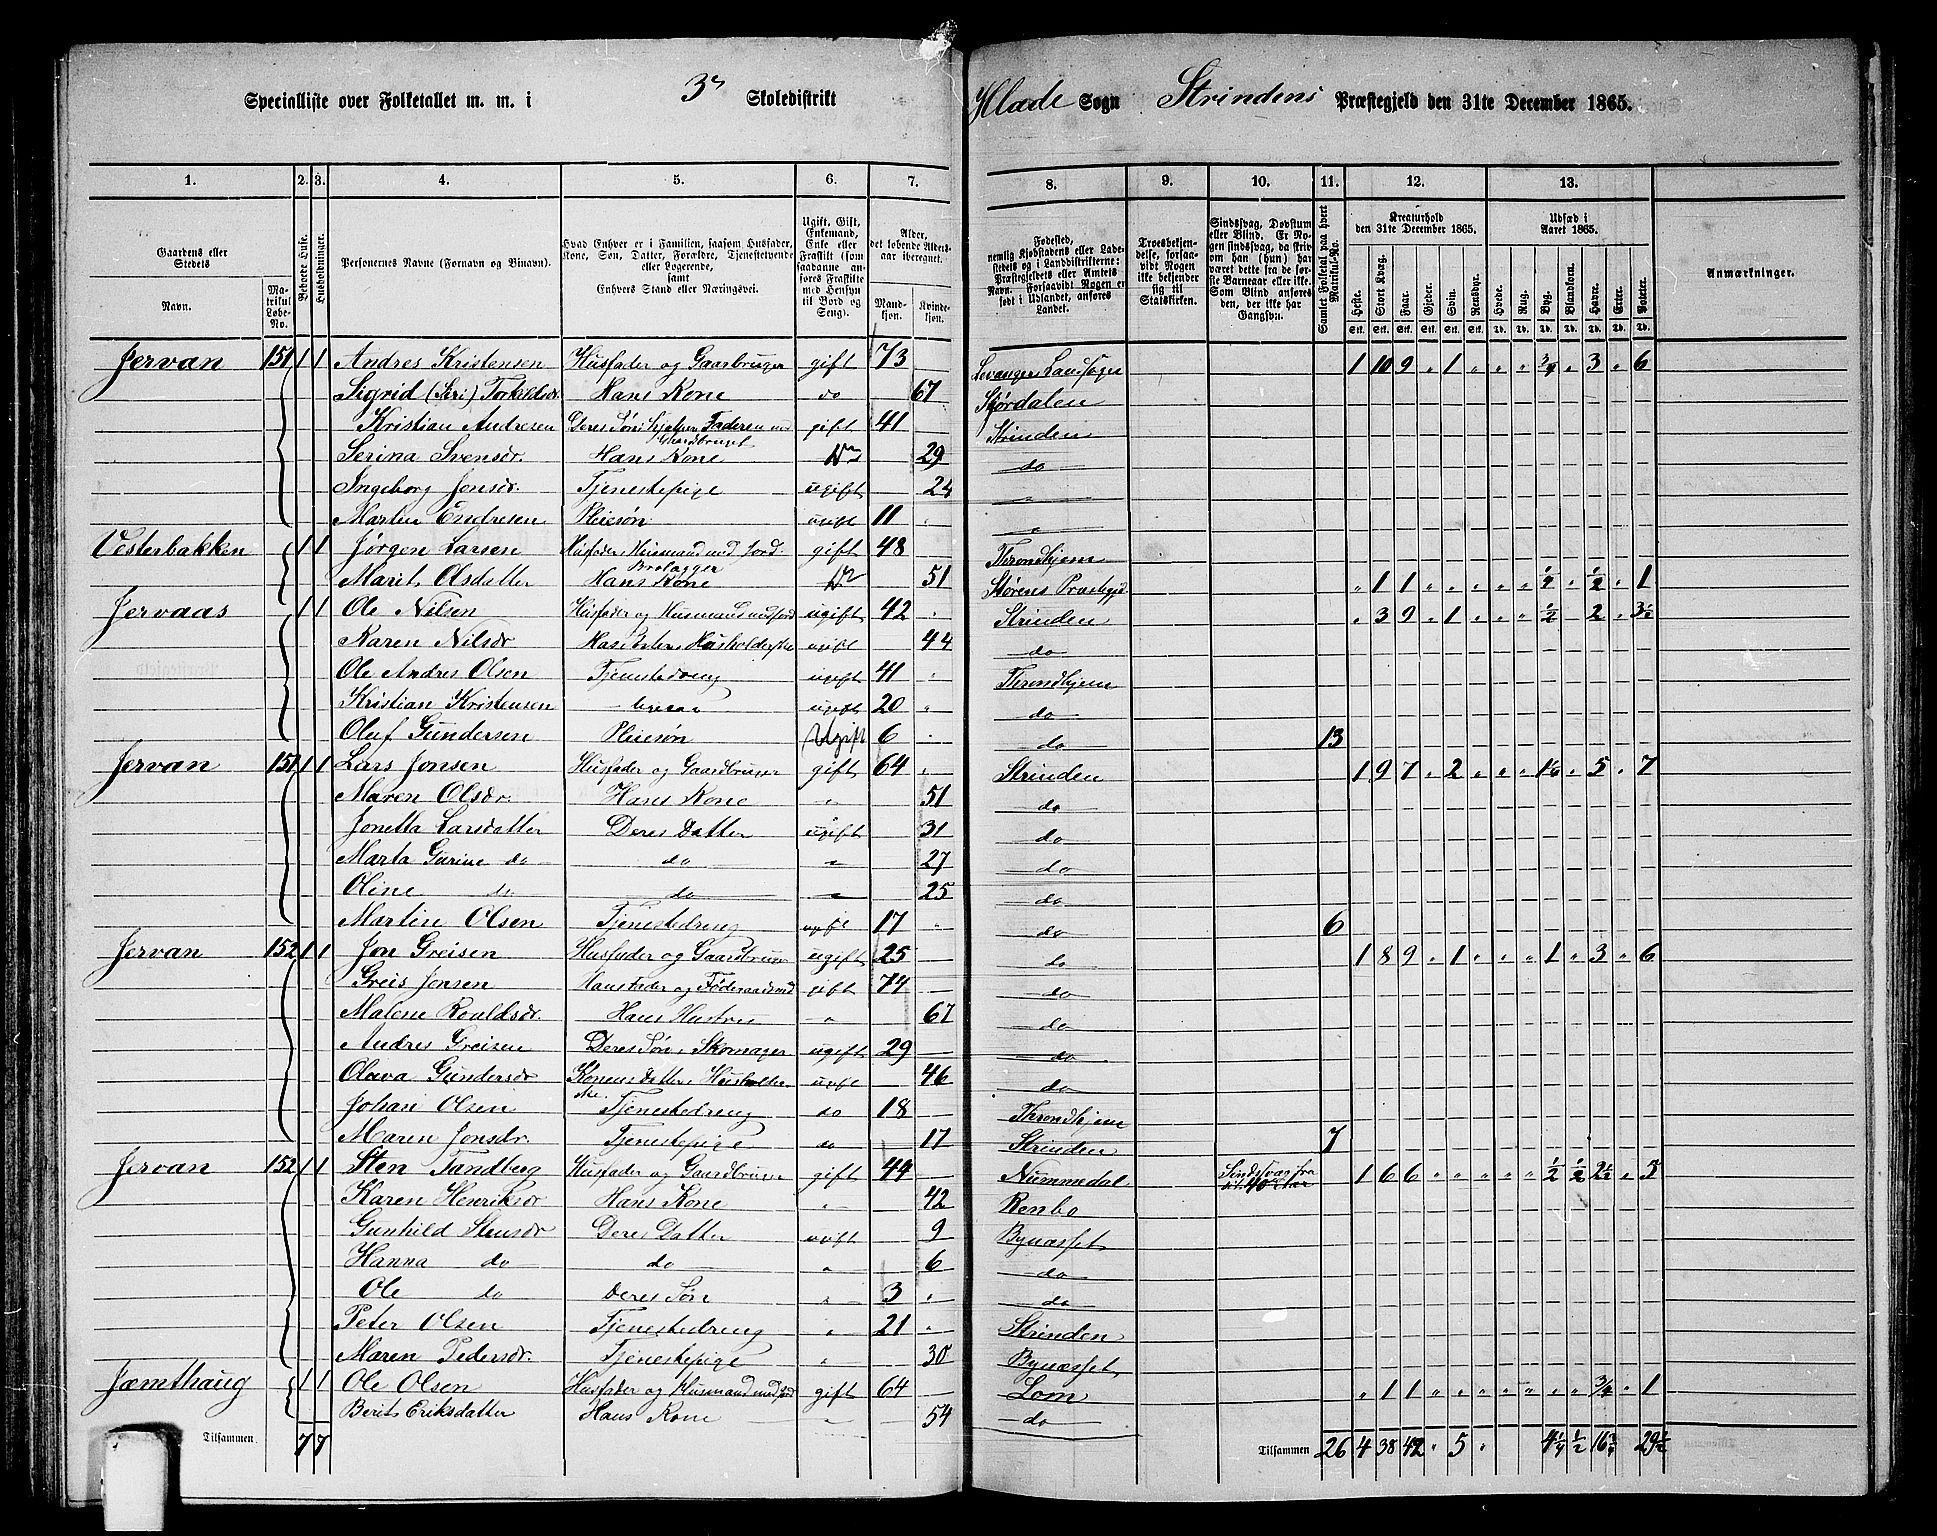 Specialliste over Folketallet m. m. i 3 Skoledistrikt Hlade Sogn Strindens Præstegjeld den 31te December 1865.
1. 2. 3. 4. 5. 6. 7. 8. 9. 10. 11. 12. 13.
Gaardens eller Stedets
Navn. Matrikul Løbe-No.
Beboede Huse.
Husholdninger.
Personernes Navne (Fornavn og Binavn).
Hvad Enhver er i Familien, saasom Husfader, Kone, Søn, Datter, Forældre, Tjenestetyende eller Logerende, samt Enhvers Stand eller Næringsvei.
Ugift, Gift, Enkemand, Enke eller Fraskilt (som saadanne anføres Fraskilte med Hensyn til Bord og Seng).
Alder, det løbende Aldersaar iberegnet.
Mandkjøn. Kvindekjøn.
Fødested, nemlig Kjøbstadens eller Ladestedets eller i Landdistrikterne: Præstegjeldets eller Amtets Navn. Forsaavidt Nogen er født i Udlandet, anføres Landet.
Troesbekjendelse, forsaavidt Nogen ikke bekjender sig til Statskirken.
Sindssvag, Døvstum eller Blind. Er Nogen sindssvag, da skrives om han (hun) har været dette fra de første Barneaar eller ikke. Som Blind anføres den, der ikke har Gangsyn.
Samlet Folketal paa hvert Matrikul-No.
Kreaturhold den 31te December 1865.
Heste. Stort Kvæg. Faar. Gjeder. Svin. Rensdyr.
Udsæd i Aaret 1865.
Hvede. Rug. Byg. Blandkorn. Havre. Erter. Poteter.
Anmærkninger.
Jervan 151 1 1 Andres Kristensen Husfader og Gaarbruger gift 73 1 10 9 1 3/4 3 6
Sigrid (Siri) Torkildsdr. Hans Kone do 67 Stjørdalen
Kristian Andresen Deres Søn: hjelper Faderen med Gaardbruget gift 41 Strinden
Serina Svensdr. Hans Kone Do 29 do
Ingeborg Jonsdr. Tjenestepige ugift 24 "
Martin Endresen Pleiesøn ugift 11 "
Vesterbakken 1 1 Jørgen Larsen Husfader, Huusmand med Jord. Brolægger gift 48 Throndhjem
Marit Olsdatter Hans Kone Do 51 Størens Præstegjd " 1 1 " " " " " 1/2 " 1/2 " 1
Jervaas 1 1 Ole Nilsen Husfader og Husmand med Jord ugift 42 Strinden " 3 9 " 1 " " " 1/2 2 " 3 1/2
Karen Nilsdr Hans Søster, Husholderske ugift 44 do
Ole Andres Olsen Tjenestedreng ugift 41 Throndhjem
Kristian Kristensen ugift 20 do
Oluf Gundersen Pleiesøn Ugift 6 do 13
Jervan 151 1 1 Lars Jonsen Husfader og Gaardbruger gift 64 Strinden 1 9 7 " 2 " " " 1 1/4 " 5 " 7
Maren Olsdr. Hans Kone " 51 do
Jonetta Larsdatter Deres Datter ugift 31 do
Marta Gurine do do " 27 do
Oline do do " 25 do
Martin Olsen Tjenestedreng ugift 17 do 6
Jervan 152 1 1 Jon Greisen Husfader og Gaardbruger ugift 25 do 1 8 9 " 1 " " " 1 " 3 " 6
Greis Jonsen Hans Fader og Føderaadsmd gift 74 do
Malene Roaldsdr. Hans Hustru " 67 do
Andres Greisen Deres Søn, Skomager ugift 29 do
Olava Gundersdr Konens Datter, Husholderske ugift 46 do
Johan Olsen Tjenestedreng do 18 Throndhjem
Maren Jonsdr. Tjenestepige do 17 Strinden 7
Jervan 152 1 1 Sten Tandberg Husfader og Gaardbruger gift 44 Nummedal Sindssvag fra 1 6 6 " " " " " 1/2 1/2 2 1/2 " 5
Karen Henriksdr Hans Kone " 42 Renbo
Gunhild Stensdr Deres Datter ugift 9 Bynæsset
Hanna do do " 6 do
Ole do Deres Søn " 3 do
Peter Olsen Tjenestedreng " 21 Strinden
Maren Pedersdr. Tjenestepige " 30 Bynæsset
Jæmthaug 1 1 Ole Olsen Husfader og Husmand med Jord gift 64 Lom " 1 1 " " " " " " " 3/4 " 1
Berit Eriksdatter Hans Kone " 54 do
Tilsammen 7 7 Tilsammen 26 4 38 42 " 5 " 4 1/4 1/2 16 3/4 29 1/2